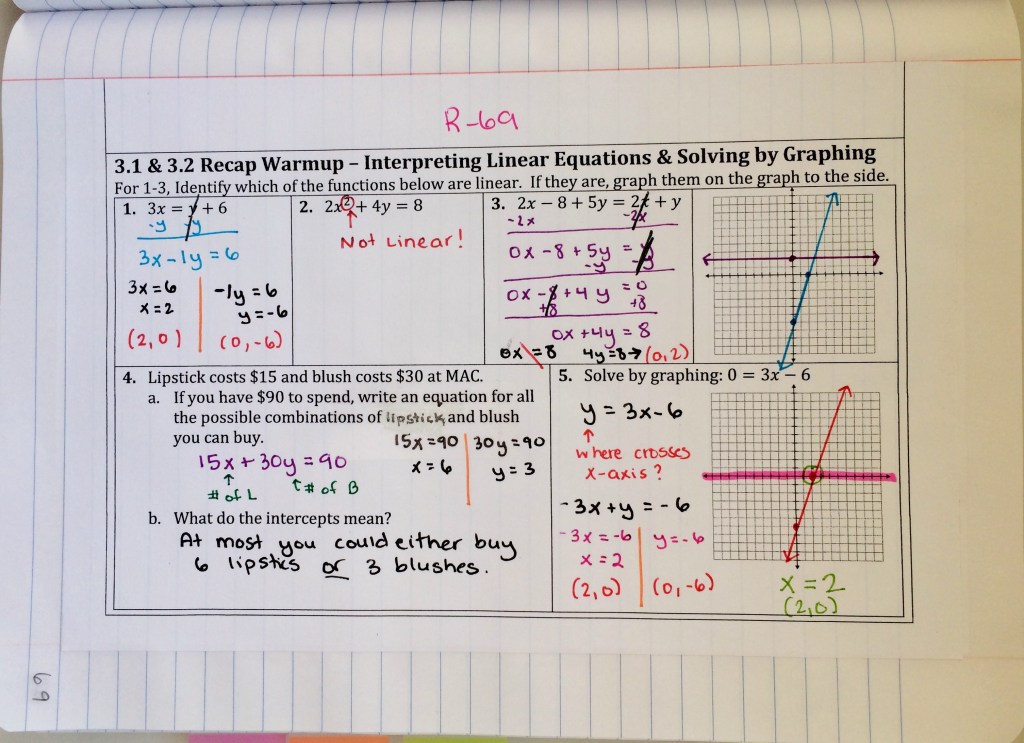 R-69
3.1 & 3.2 Recap Warmup – Interpreting Linear Equations & Solving by Graphing
For 1-3, Identify which of the functions below are linear. If they are, graph them on the graph to the side.
1. 3x = y + 6
-y -y
3x - 1y = 6
3x = 6
x = 2
(2, 0)
-1y = 6
y = -6
(0, -6)
2. 2x² + 4y = 8
Not Linear!
3. 2x − 8 + 5y = 2x + y
-2x -2x
0x - 8 + 5y = y
-y -y
0x - 8 + 4y = 0
+8 +8
0x + 4y = 8
0x = 8 4y = 8 → (0, 2)
4. Lipstick costs $15 and blush costs $30 at MAC.
a. If you have $90 to spend, write an equation for all
the possible combinations of lipstick and blush
you can buy.
15x + 30y = 90
# of L # of B
15x = 90
x = 6
30y = 90
y = 3
b. What do the intercepts mean?
At most you could either buy
6 lipstics or 3 blushes.
5. Solve by graphing: 0 = 3x − 6
y = 3x - 6
where crosses
x-axis?
-3x + y = -6
-3x = -6
x = 2
(2, 0)
y = -6
(0, -6)
x = 2
(2, 0)
69